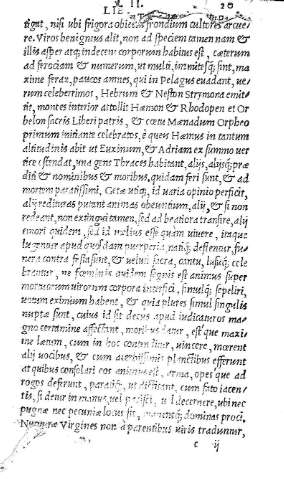 LIB. II. 20
tigat, nisi ubi frigora obiectu frondium cultores arcue
re. Viros benignius alit, non ad speciem tamen nam &
illis asper atq; indecens corporum habitus est, cæterum
ad ferociam & numerum, ut multi, immitesq; sint, ma
xime ferax, paucos amnes, qui in Pelagus euadant, ue
rum celeberrimos, Hebrum & Neston Strymona emit
tit, montes interior attollit Hæmon & Rhodopen et Or
belon sacris Liberi patris, & cœtu Mænadum Orpheo
primum initiante celebratos, è queis Hæmus in tantum
altitudinis abit ut Euxinum, & Adriam ex summo uer
tice ostendat, una gens Thraces habitant, alijs, alijsq; præ
diti & nominibus & moribus, quidam feri sunt, & ad
mortem paratissimi, Getæ utiq;, id uaria opinio perficit,
alij redituras putant animas obeuntium, alij, & si non
redeant, non extingui tamen, sed ad beatiora transire, alij
emori quidem, sed id melius esse quàm uiuere, itaque
lugentur apud quosdam puerperia natiq; deflentur, fu
nera contra festa sunt, & ueluti sacra, cantu, lusuq; cele
brantur, ne fœminis quidem segnis est animus super
mortuorum uirorum corpora interfici, simulq; sepeliri,
uotum eximium habent, & quia plures simul singulis
nuptæ sunt, cuius id sit decus apud iudicaturos ma
gno certamine affectant, moribus datur, est que maxi
me lætum, cum in hoc contenditur, uincere, mœrent
alij uocibus, & cum acerbissimis planctibus efferunt
at quibus consolari eos animus est, arma, opes que ad
rogos deferunt, paratiq;, ut dictitant, cum fato iacen
tis, si detur in manus, uel pacisci, uel decernere, ubi nec
pugnæ nec pecuniæ locus sit, manentq; dominas proci.
Nupturæ Virgines non à parentibus uiris traduntur,
c ij